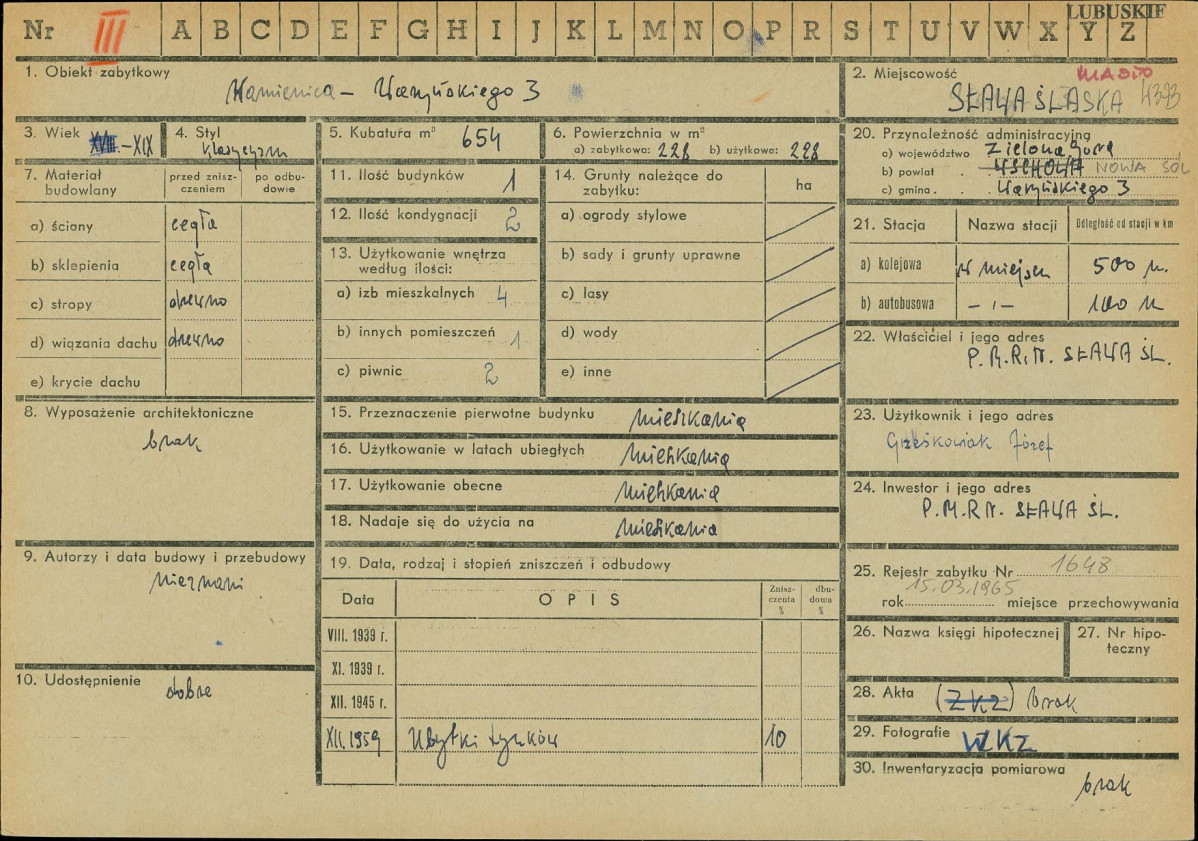 LUBUSKIE
Nr III A B C D E F G H I J K L M N O P R S T U V W X Y Z
1. Obiekt zabytkowy
Kamienica – Waryńskiego 3
2. Miejscowość MIASTO
SŁAWA ŚLĄSKA 4393
3. Wiek XVIII.–XIX
4. Styl
klasycyzm
5. Kubatura m³ 654
6. Powierzchnia w m²
a) zabytkowa: 228 b) użytkowa: 228
7. Materiał budowlany
przed znisz-
czeniem
po odbu-
dowie
a) ściany cegła
b) sklepienia cegła
c) stropy drewno
d) wiązania dachu drewno
e) krycie dachu
8. Wyposażenie architektoniczne
brak
9. Autorzy i data budowy i przebudowy
nieznani
10. Udostępnienie dobre
11. Ilość budynków 1
12. Ilość kondygnacji 2
13. Użytkowanie wnętrza
według ilości:
a) izb mieszkalnych 4
b) innych pomieszczeń 1
c) piwnic 2
14. Grunty należące do
zabytku: ha
a) ogrody stylowe
b) sady i grunty uprawne
c) lasy
d) wody
e) inne
15. Przeznaczenie pierwotne budynku mieszkania
16. Użytkowanie w latach ubiegłych mieszkania
17. Użytkowanie obecne mieszkania
18. Nadaje się do użycia na mieszkania
19. Data, rodzaj i stopień zniszczeń i odbudowy
Data OPIS Znisz-
czenia
%
dbu-
dowa
%
VIII. 1939 r.
XI. 1939 r.
XII. 1945 r.
XII. 1959 Ubytki tynków 10
20. Przynależność administracyjna
a) województwo Zielona Góra
b) powiat . WSCHOWA NOWA SÓL
c) gmina . . Waryńskiego 3
21. Stacja Nazwa stacji Odległość od stacji w km
a) kolejowa w miejscu 500 m.
b) autobusowa – ı – 100 m
22. Właściciel i jego adres
P.M.R.N. SŁAWA ŚL.
23. Użytkownik i jego adres
Grześkowiak Józef
24. Inwestor i jego adres
P.M.R.N. SŁAWA ŚL.
25. Rejestr zabytku Nr 1648
15.03.1965
rok miejsce przechowywania
26. Nazwa księgi hipotecznej
27. Nr hipo-
teczny
28. Akta (ZKZ) brak
29. Fotografie WKZ
30. Inwentaryzacja pomiarowa
brak